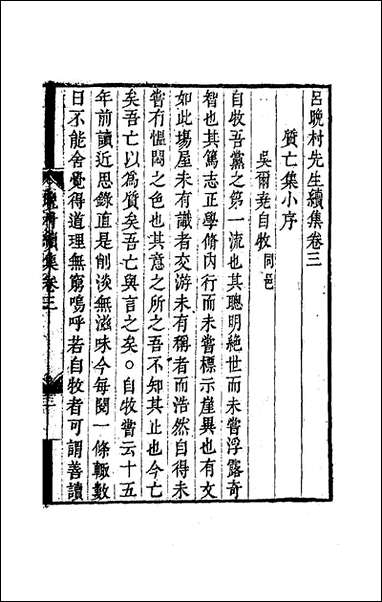 呂晚村先生續集卷三
質亡集小序
吳爾堯自牧同邑
自牧吾黨之第一流也其聰明絶世而未嘗浮露奇
智也其篤志正學脩内行而未嘗標示崖異也有文
如此塲屋未有識者交游未有稱者而浩然自得未
嘗有慍悶之色也其意之所之吾不知其止也今亡
矣吾亡以爲質矣吾亡與言之矣○自牧嘗云十五
年前讀近思錄直是削淡無滋味今每閱一條輒數
日不能舍覺得道理無窮嗚呼若自牧者可謂善讀
晚村續集卷三